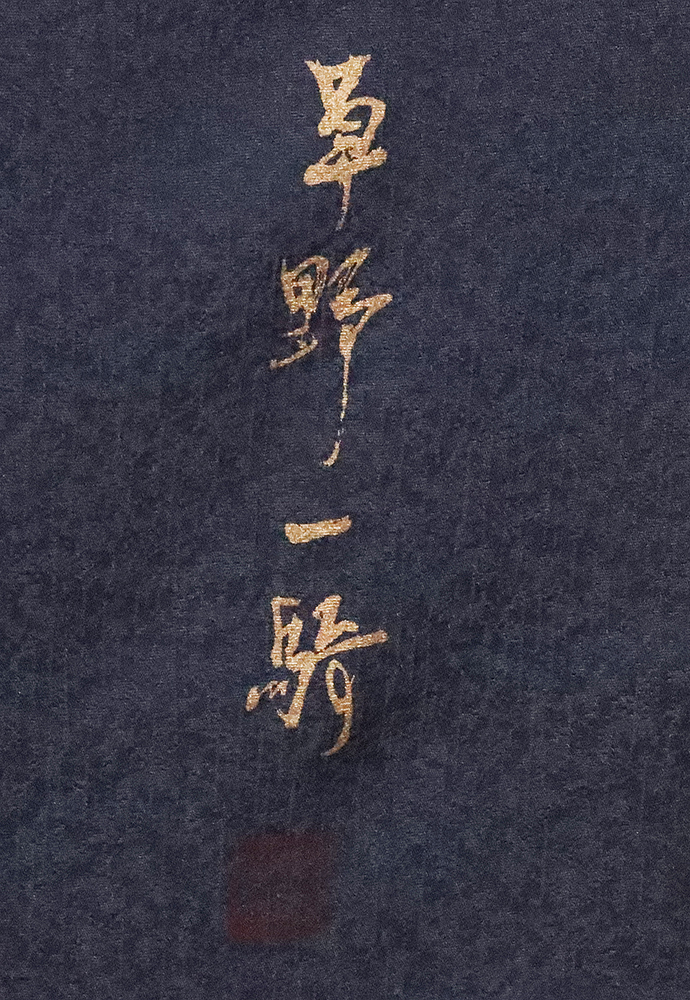 草野一騎